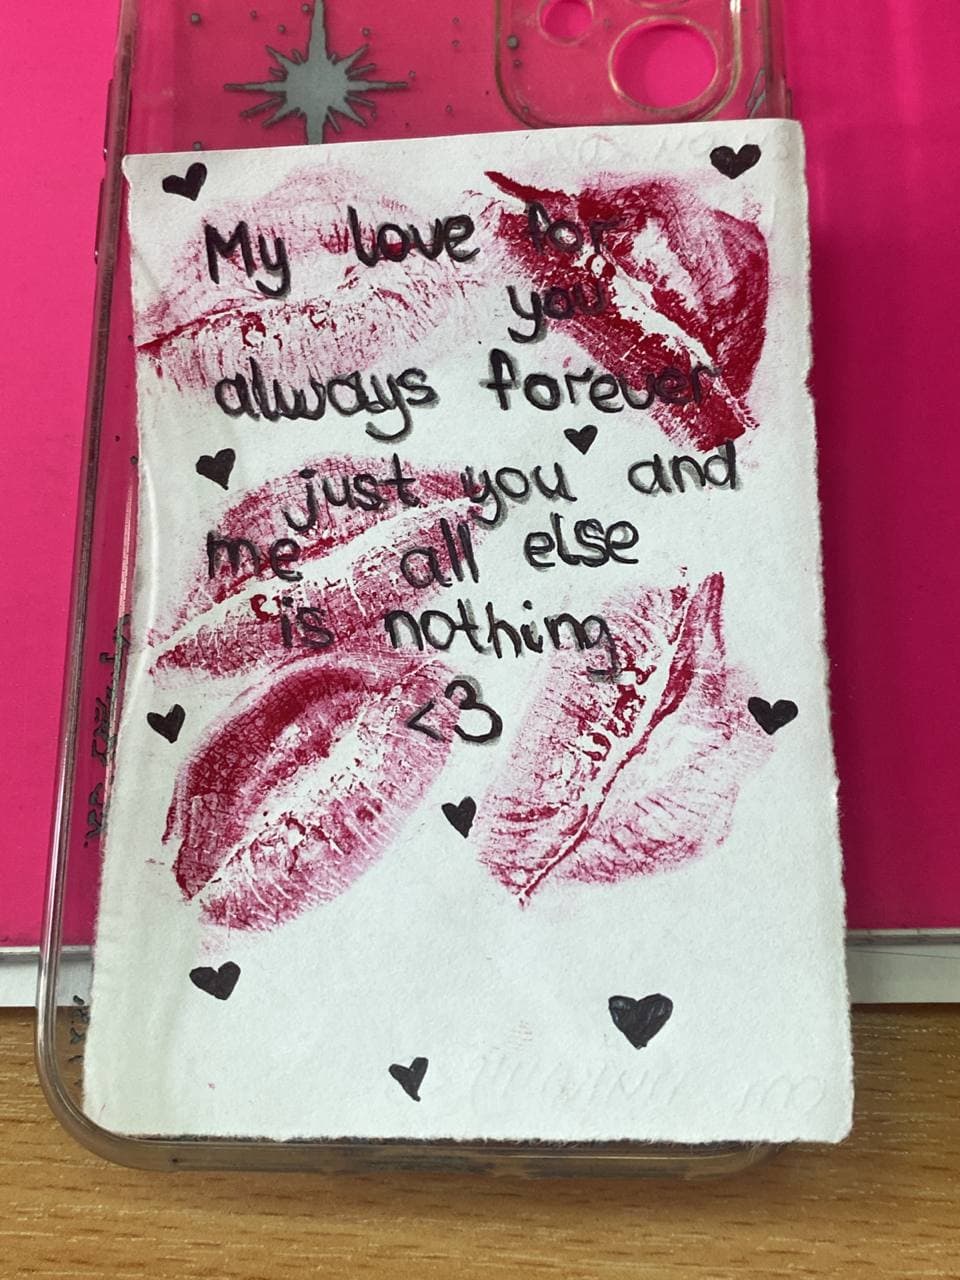 My love for
you
always forever
just you and
me all else
is nothing
<3